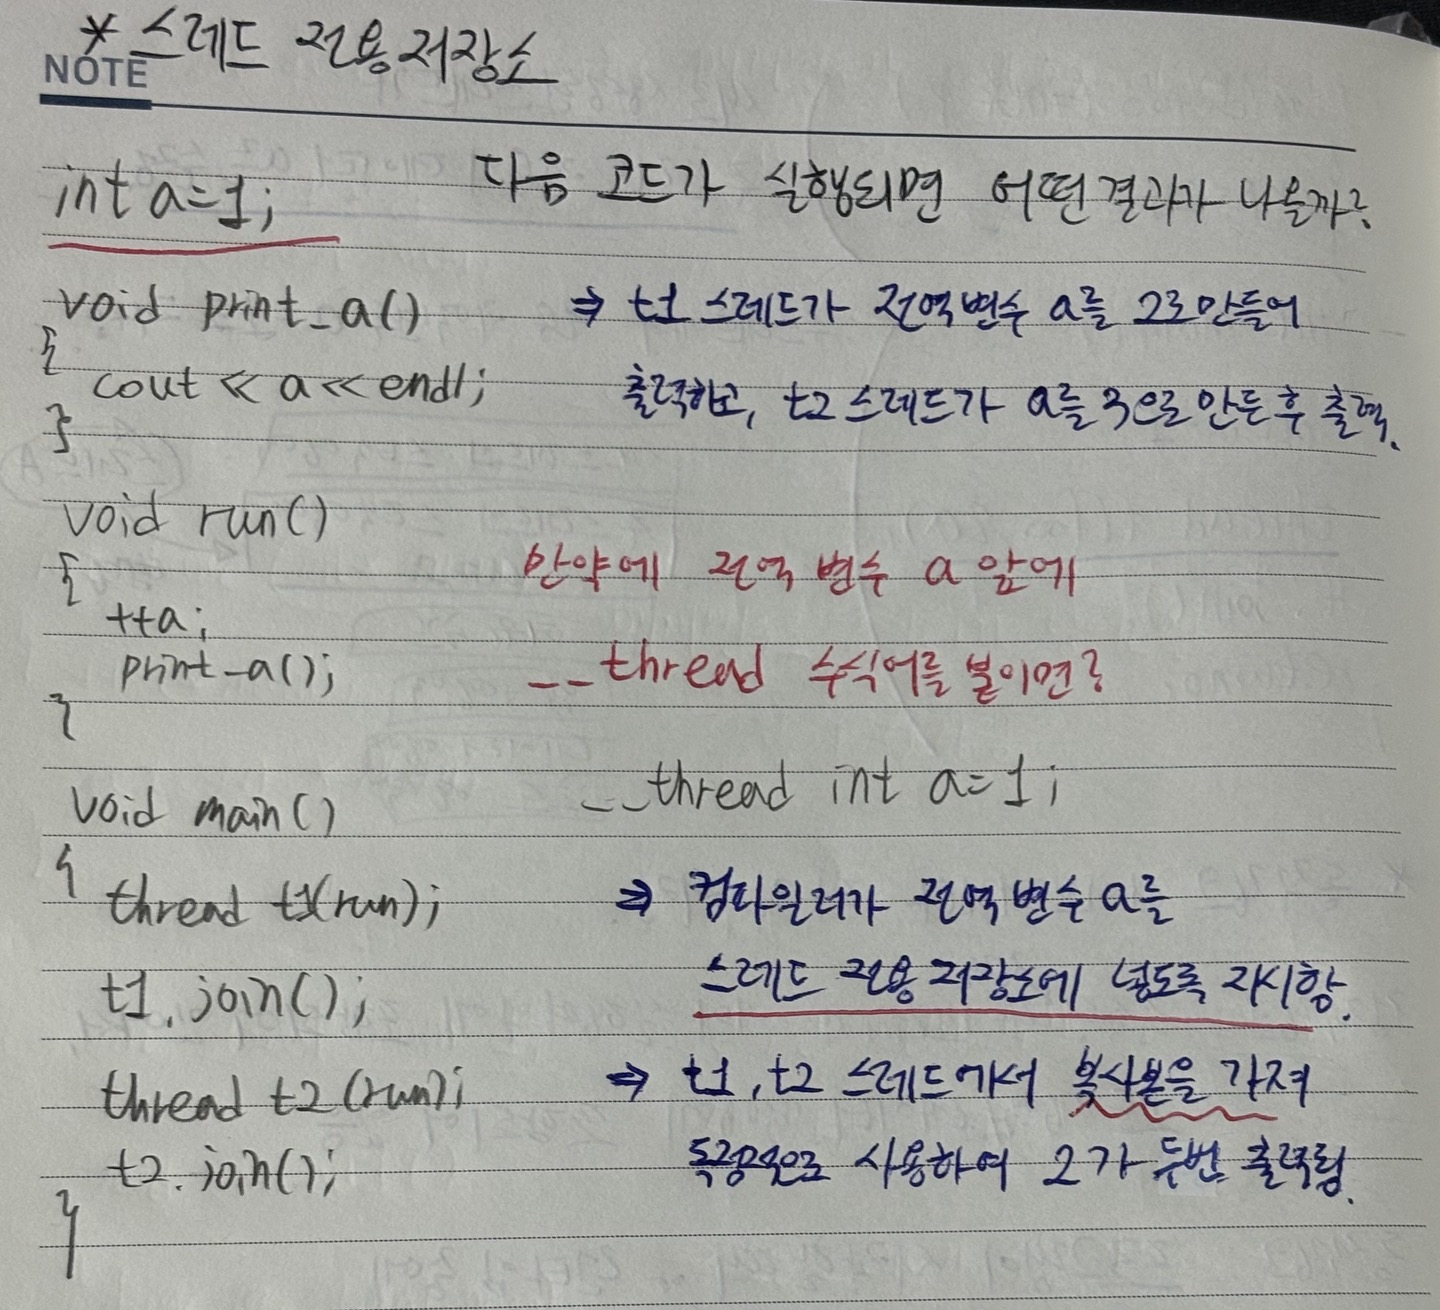 * 스레드 전용 저장소
NOTE
int a=1;
다음 코드가 실행되면 어떤 결과가 나올까?
void print_a()
{
cout << a << endl;
}
⇒ t1 스레드가 전역 변수 a를 2로 만들어
출력하고, t2 스레드가 a를 3으로 만든 후 출력.
void run()
{
++a;
print_a();
}
만약에 전역 변수 a 앞에
__thread 수식어를 붙이면?
__thread int a=1;
void main()
{
thread t1(run);
t1.join();
thread t2(run);
t2.join();
}
⇒ 컴파일러가 전역 변수 a를
스레드 전용 저장소에 넣도록 지시함.
⇒ t1, t2 스레드에서 복사본을 가져
독립적으로 사용하여 2가 두번 출력됨.